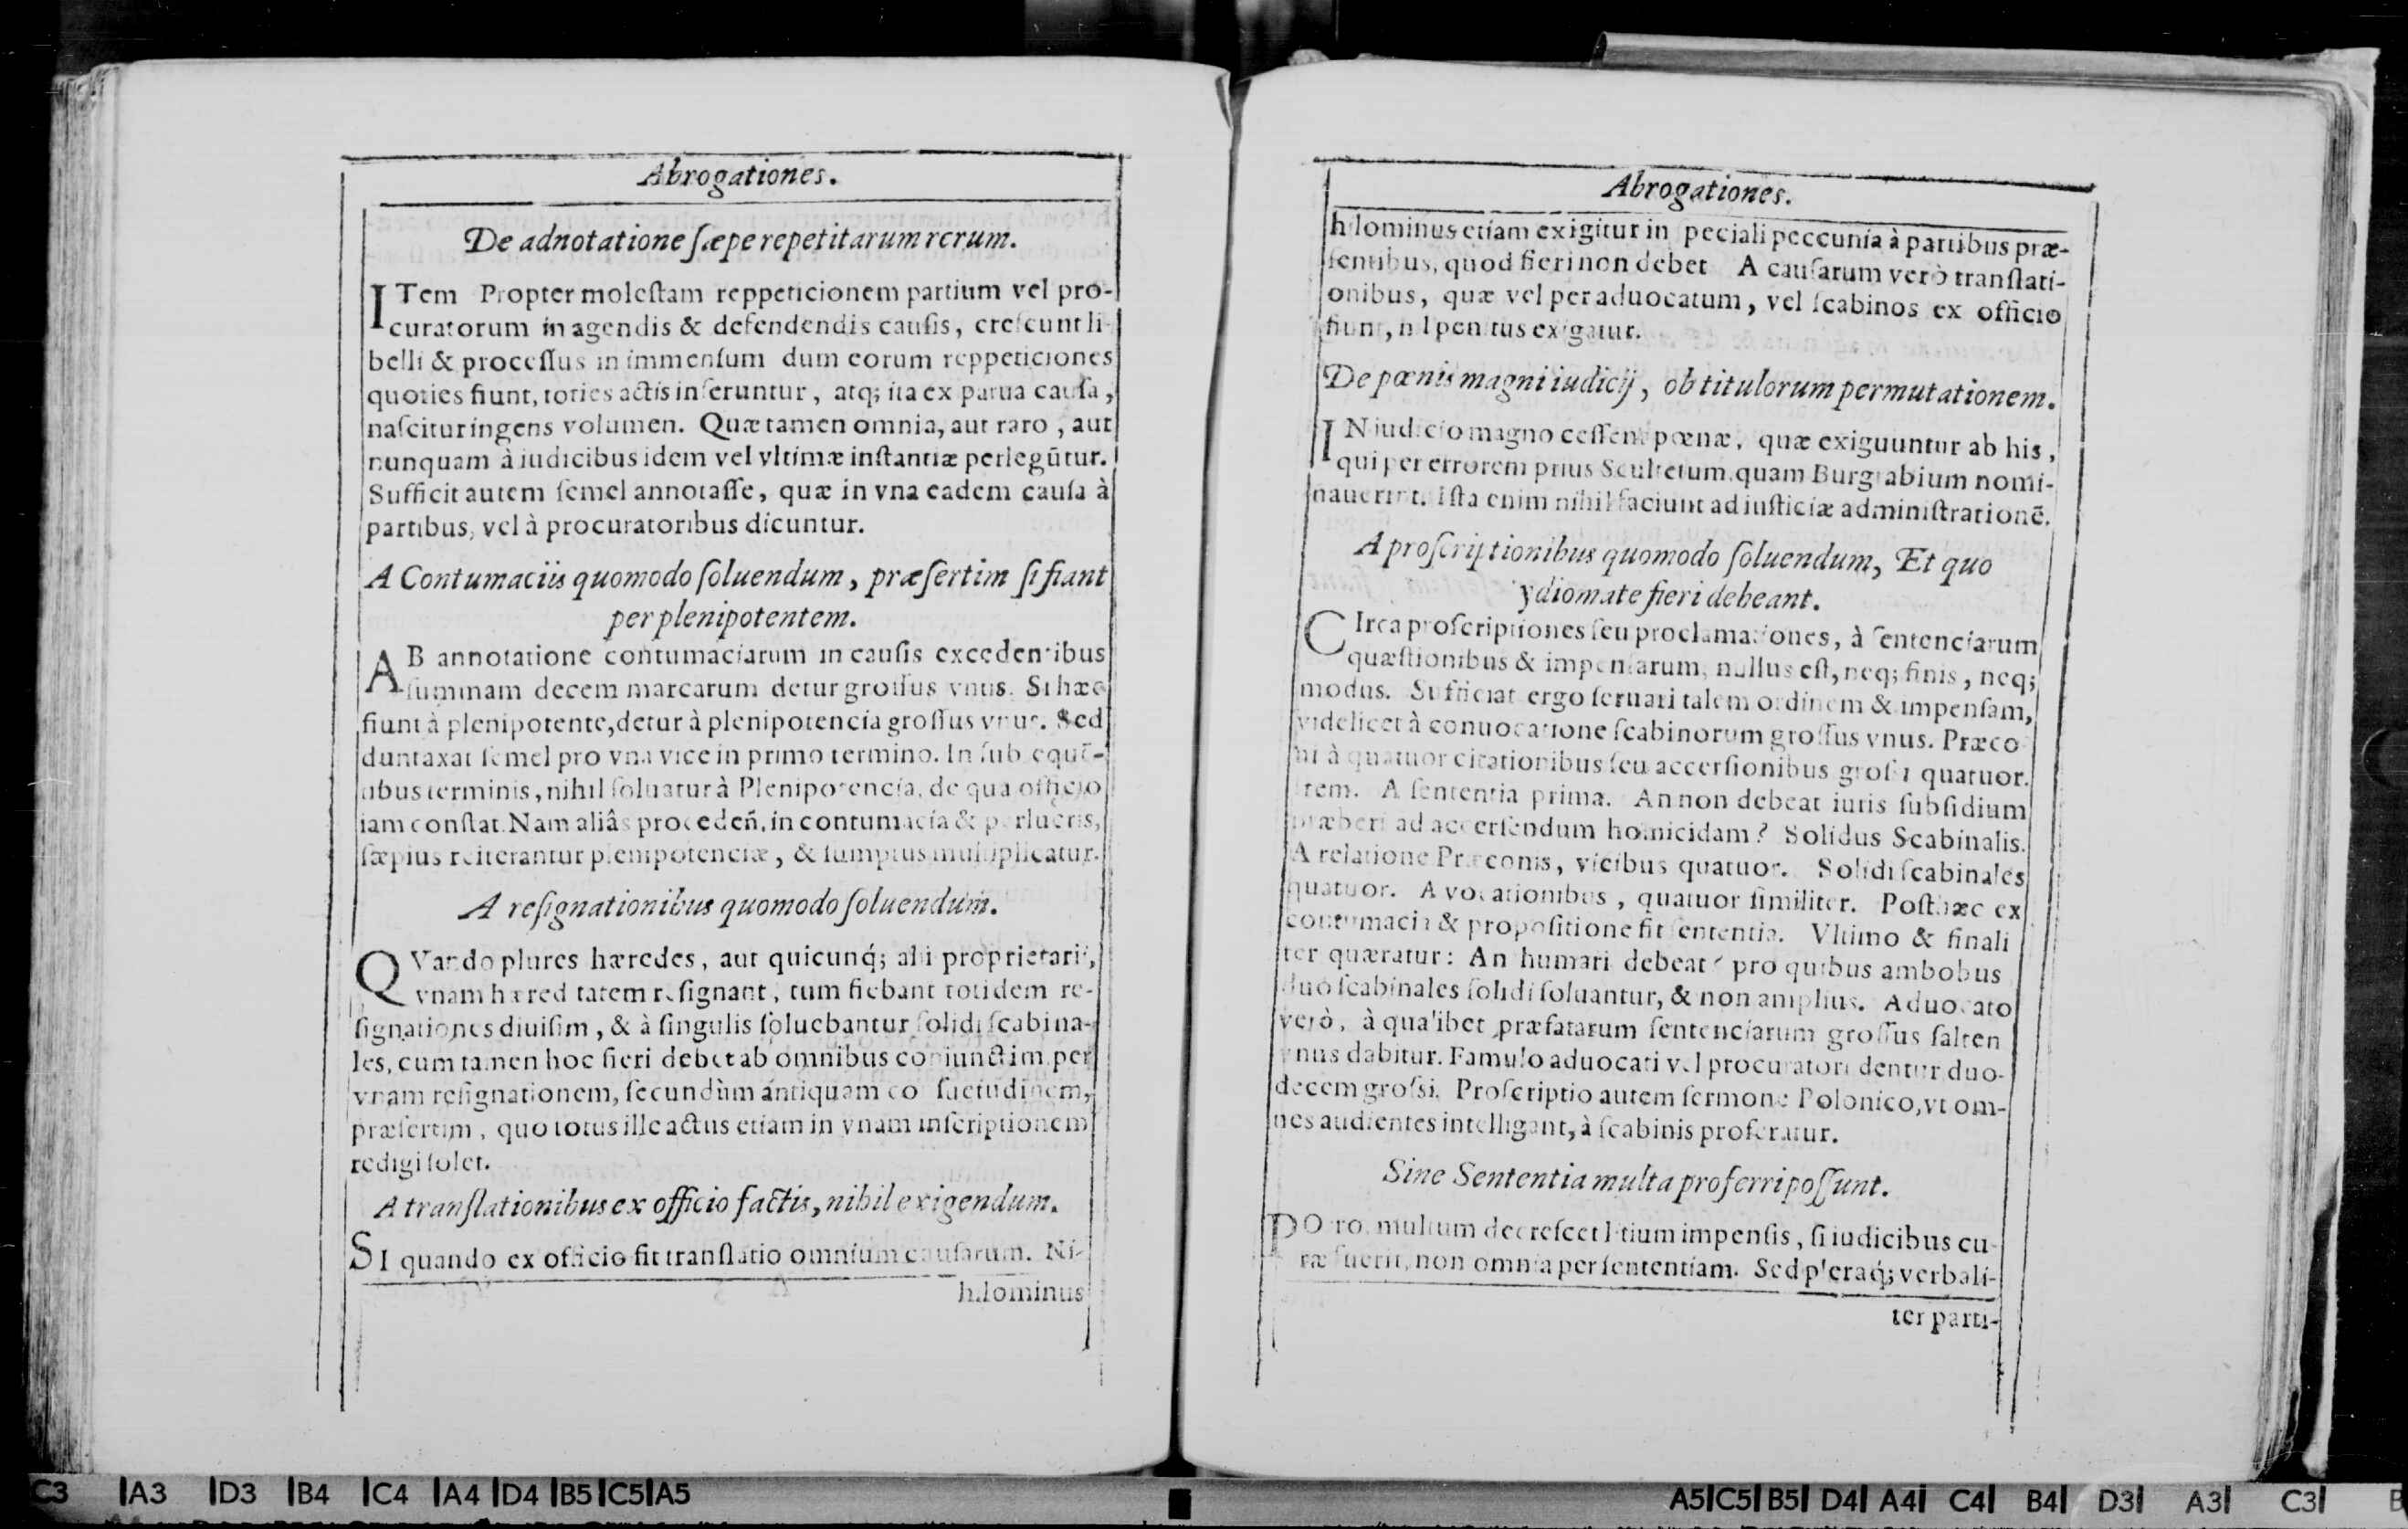 Abrogationes.
De adnotatione ſæpe repetitarum rerum.
ITem Propter moleſtam reppeticionem partium vel pro-
curatorum in agendis & defendendis cauſis, creſcunt li-
belli & proceſſus in immenſum dum eorum reppeticiones
quoties fiunt, toties actis inſeruntur, atq; ita ex parua cauſa,
naſcitur ingens volumen. Quæ tamen omnia, aut raro, aut
nunquam à iudicibus idem vel vltimæ inſtantiæ perlegūtur.
Sufficit autem ſemel annotaſſe, quæ in vna eadem cauſa à
partibus, vel à procuratoribus dicuntur.
A Contumaciis quomodo ſoluendum, præſertim ſi fiant
per plenipotentem.
AB annotatione contumaciarum in cauſis excedentibus
ſummam decem marcarum detur groſſus vnus. Si hæc
fiunt à plenipotente, detur à plenipotencia groſſus vnus. Sed
duntaxat ſemel pro vna vice in primo termino. In ſubſequē-
tibus terminis, nihil ſoluatur à Plenipotencia, de qua officio
iam conſtat. Nam aliâs proceden̄. in contumacia & perlucris,
ſæpius reiterantur plenipotenciæ, & ſumptus multiplicatur.
A reſignationibus quomodo ſoluendum.
QVando plures hæredes, aut quicunq́; alii proprietarii,
vnam hæreditatem reſignant, tum fiebant totidem re-
ſignationes diuiſim, & à ſingulis ſoluebantur ſolidi ſcabina-
les, cum tamen hoc fieri debet ab omnibus coniunctim per
vnam reſignationem, ſecundùm antiquam conſuetudinem,
præſertim, quo totus ille actus etiam in vnam inſcriptionem
redigi ſolet.
A tranſlationibus ex officio factis, nihil exigendum.
SI quando ex officio fit tranſlatio omnium cauſarum. Ni-
hilominus
Abrogationes.
hilominus etiam exigitur in ſpeciali peccunia à partibus præ-
ſentibus, quod fieri non debet A cauſarum verò tranſlati-
onibus, quæ vel per aduocatum, vel ſcabinos ex officio
fiunt, nil penitus exigatur.
De pœnis magni iudicij, ob titulorum permutationem.
IN iudicio magno ceſſent pœnæ, quæ exiguuntur ab his,
qui per errorem prius Scultetum, quam Burgrabium nomi-
nauerint. Iſta enim nihil faciunt ad iuſticiæ adminiſtrationē.
A proſcriptionibus quomodo ſoluendum, Et quo
ydiomate fieri debeant.
CIrca proſcriptiones ſeu proclamationes, à ſentenciarum
quæſtionibus & impenſarum, nullus eſt, neq; finis, neq;
modus. Sufficiat ergo ſeruari talem ordinem & impenſam,
videlicet à conuocatione ſcabinorum groſſus vnus. Præco
ni à quatuor citationibus ſeu accerſionibus groſſi quatuor.
Item. A ſententia prima. An non debeat iuris ſubſidium
præberi ad accerſendum homicidam? Solidus Scabinalis.
A relatione Præconis, vicibus quatuor. Solidi ſcabinales
quatuor. A vocationibus, quatuor ſimiliter. Poſthæc ex
contumacia & propoſitione fit ſententia. Vltimo & finali
ter quæratur: An humari debeat? pro quibus ambobus
duo ſcabinales ſolidi ſoluantur, & non amplius. Aduocato
verò, à qualibet præfatarum ſentenciarum groſſus ſalten
vnus dabitur. Famulo aduocati vel procuratori dentur duo-
decem groſsi. Proſcriptio autem ſermone Polonico, vt om-
nes audientes intelligant, à ſcabinis proferatur.
Sine Sententia multa proferri poſſunt.
POrro, multum decreſcet litium impenſis, ſi iudicibus cu-
ræ fuerit, non omnia per ſententiam. Sed pleraq́; verbali-
ter parti-
C3 A3 D3 B4 C4 A4 D4 B5 C5 A5
A5 C5 B5 D4 A4 C4 B4 D3 A3 C3 B